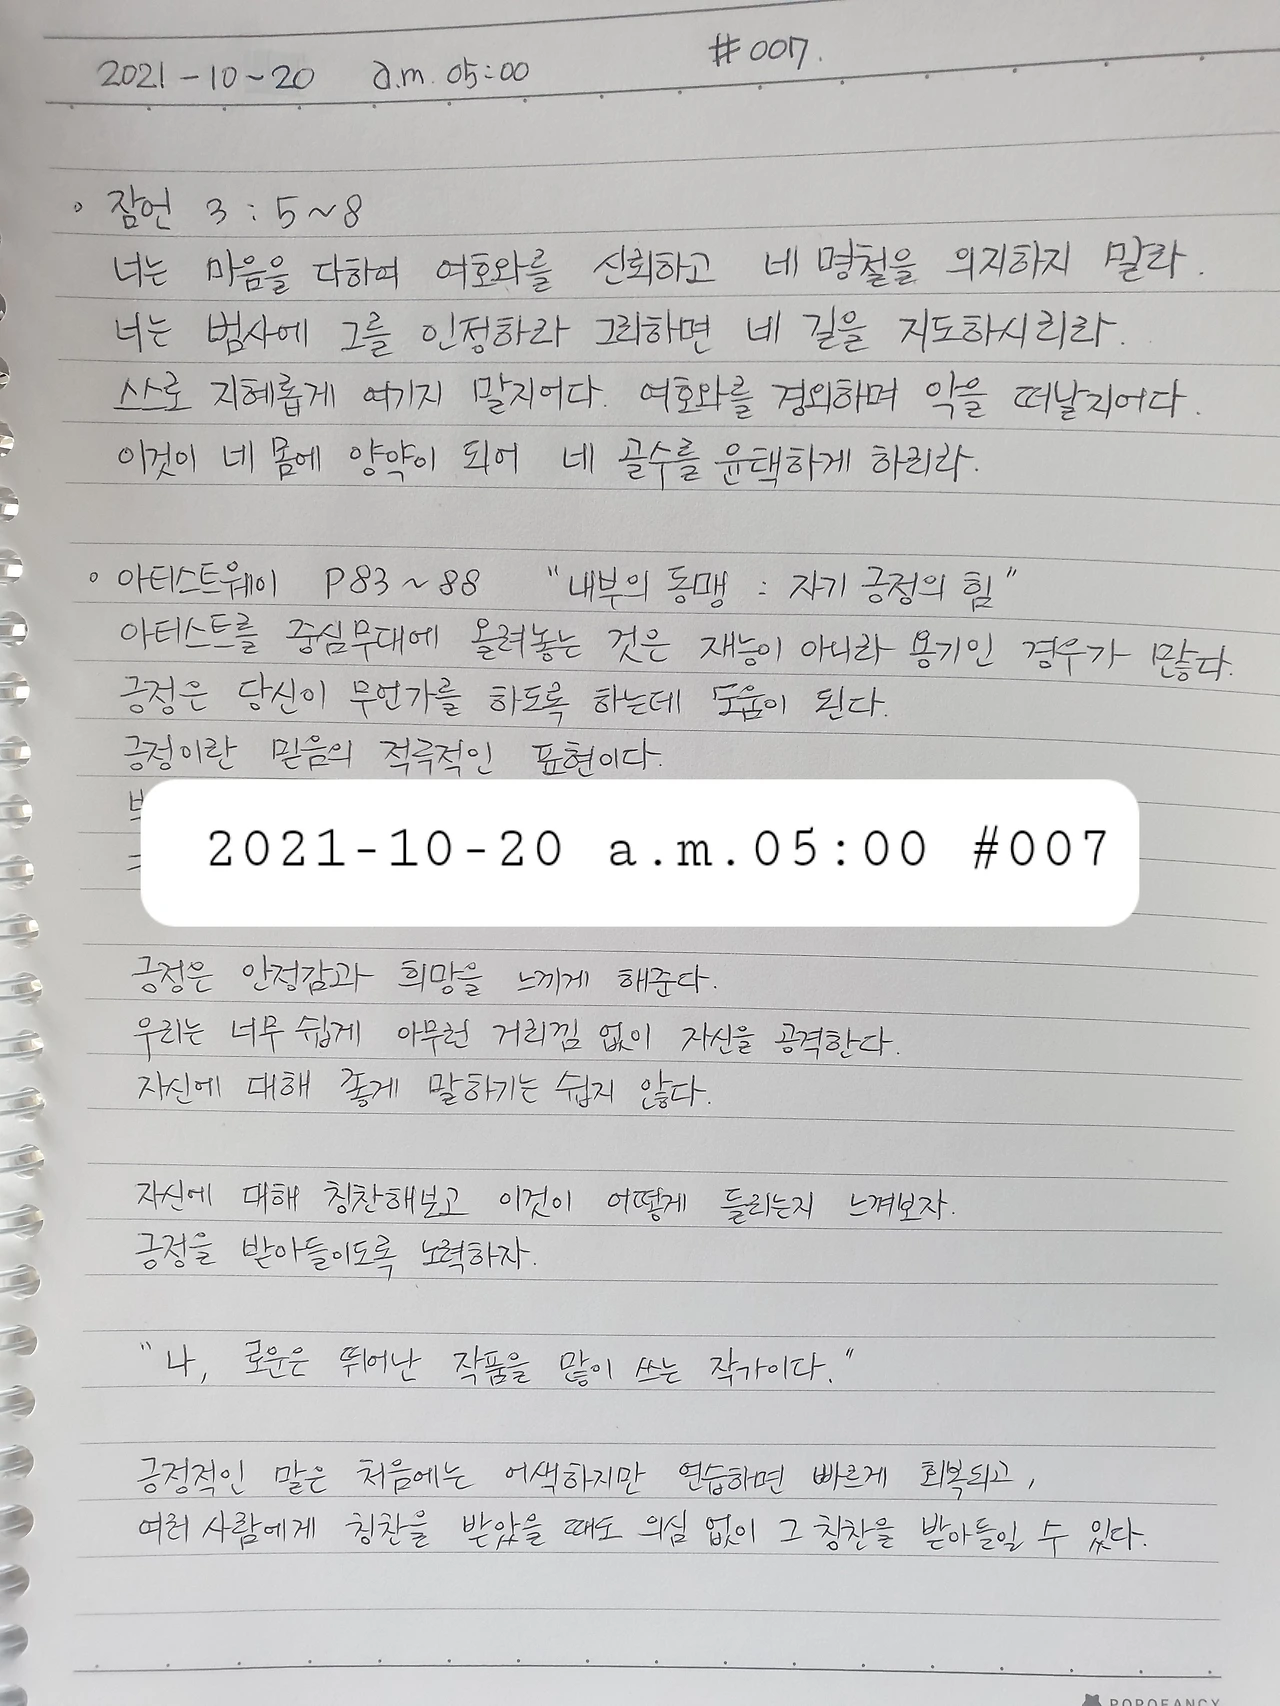 2021-10-20 a.m. 05:00 #007.
잠언 3:5~8
너는 마음을 다하여 여호와를 신뢰하고 네 명철을 의지하지 말라.
너는 범사에 그를 인정하라 그리하면 네 길을 지도하시리라.
스스로 지혜롭게 여기지 말지어다. 여호와를 경외하며 악을 떠날지어다.
이것이 네 몸에 양약이 되어 네 골수를 윤택하게 하리라.
아티스트웨이 P83~88 "내부의 동맹 : 자기 긍정의 힘"
아티스트를 중심무대에 올려놓는 것은 재능이 아니라 용기인 경우가 많다.
긍정은 당신이 무언가를 하도록 하는데 도움이 된다.
긍정이란 믿음의 적극적인 표현이다.
2021-10-20 a.m.05:00 #007
긍정은 안정감과 희망을 느끼게 해준다.
우리는 너무 쉽게 아무런 거리낌 없이 자신을 공격한다.
자신에 대해 좋게 말하기는 쉽지 않다.
자신에 대해 칭찬해보고 이것이 어떻게 들리는지 느껴보자.
긍정을 받아들이도록 노력하자.
"나, 로운은 뛰어난 작품을 많이 쓰는 작가이다."
긍정적인 말은 처음에는 어색하지만 연습하면 빠르게 회복되고,
여러 사람에게 칭찬을 받았을 때도 의심 없이 그 칭찬을 받아들일 수 있다.